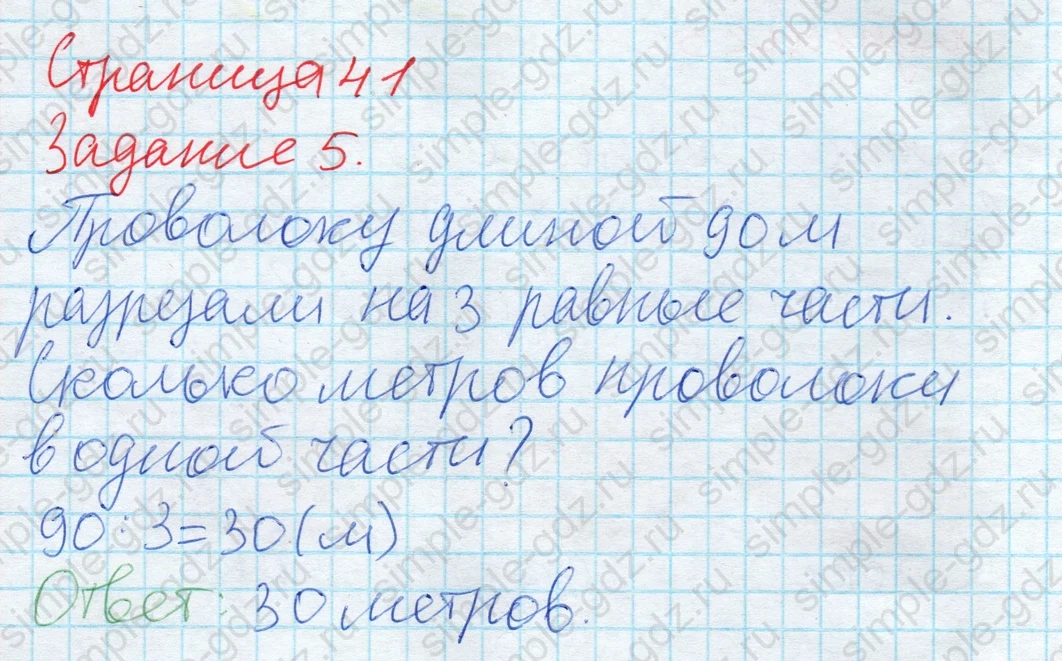 Страница 41
Задание 5.
Проволоку длиной 90 м
разрезали на 3 равные части.
Сколько метров проволоки
в одной части?
90:3=30(м)
Ответ: 30 метров.
simple-gdz.ru